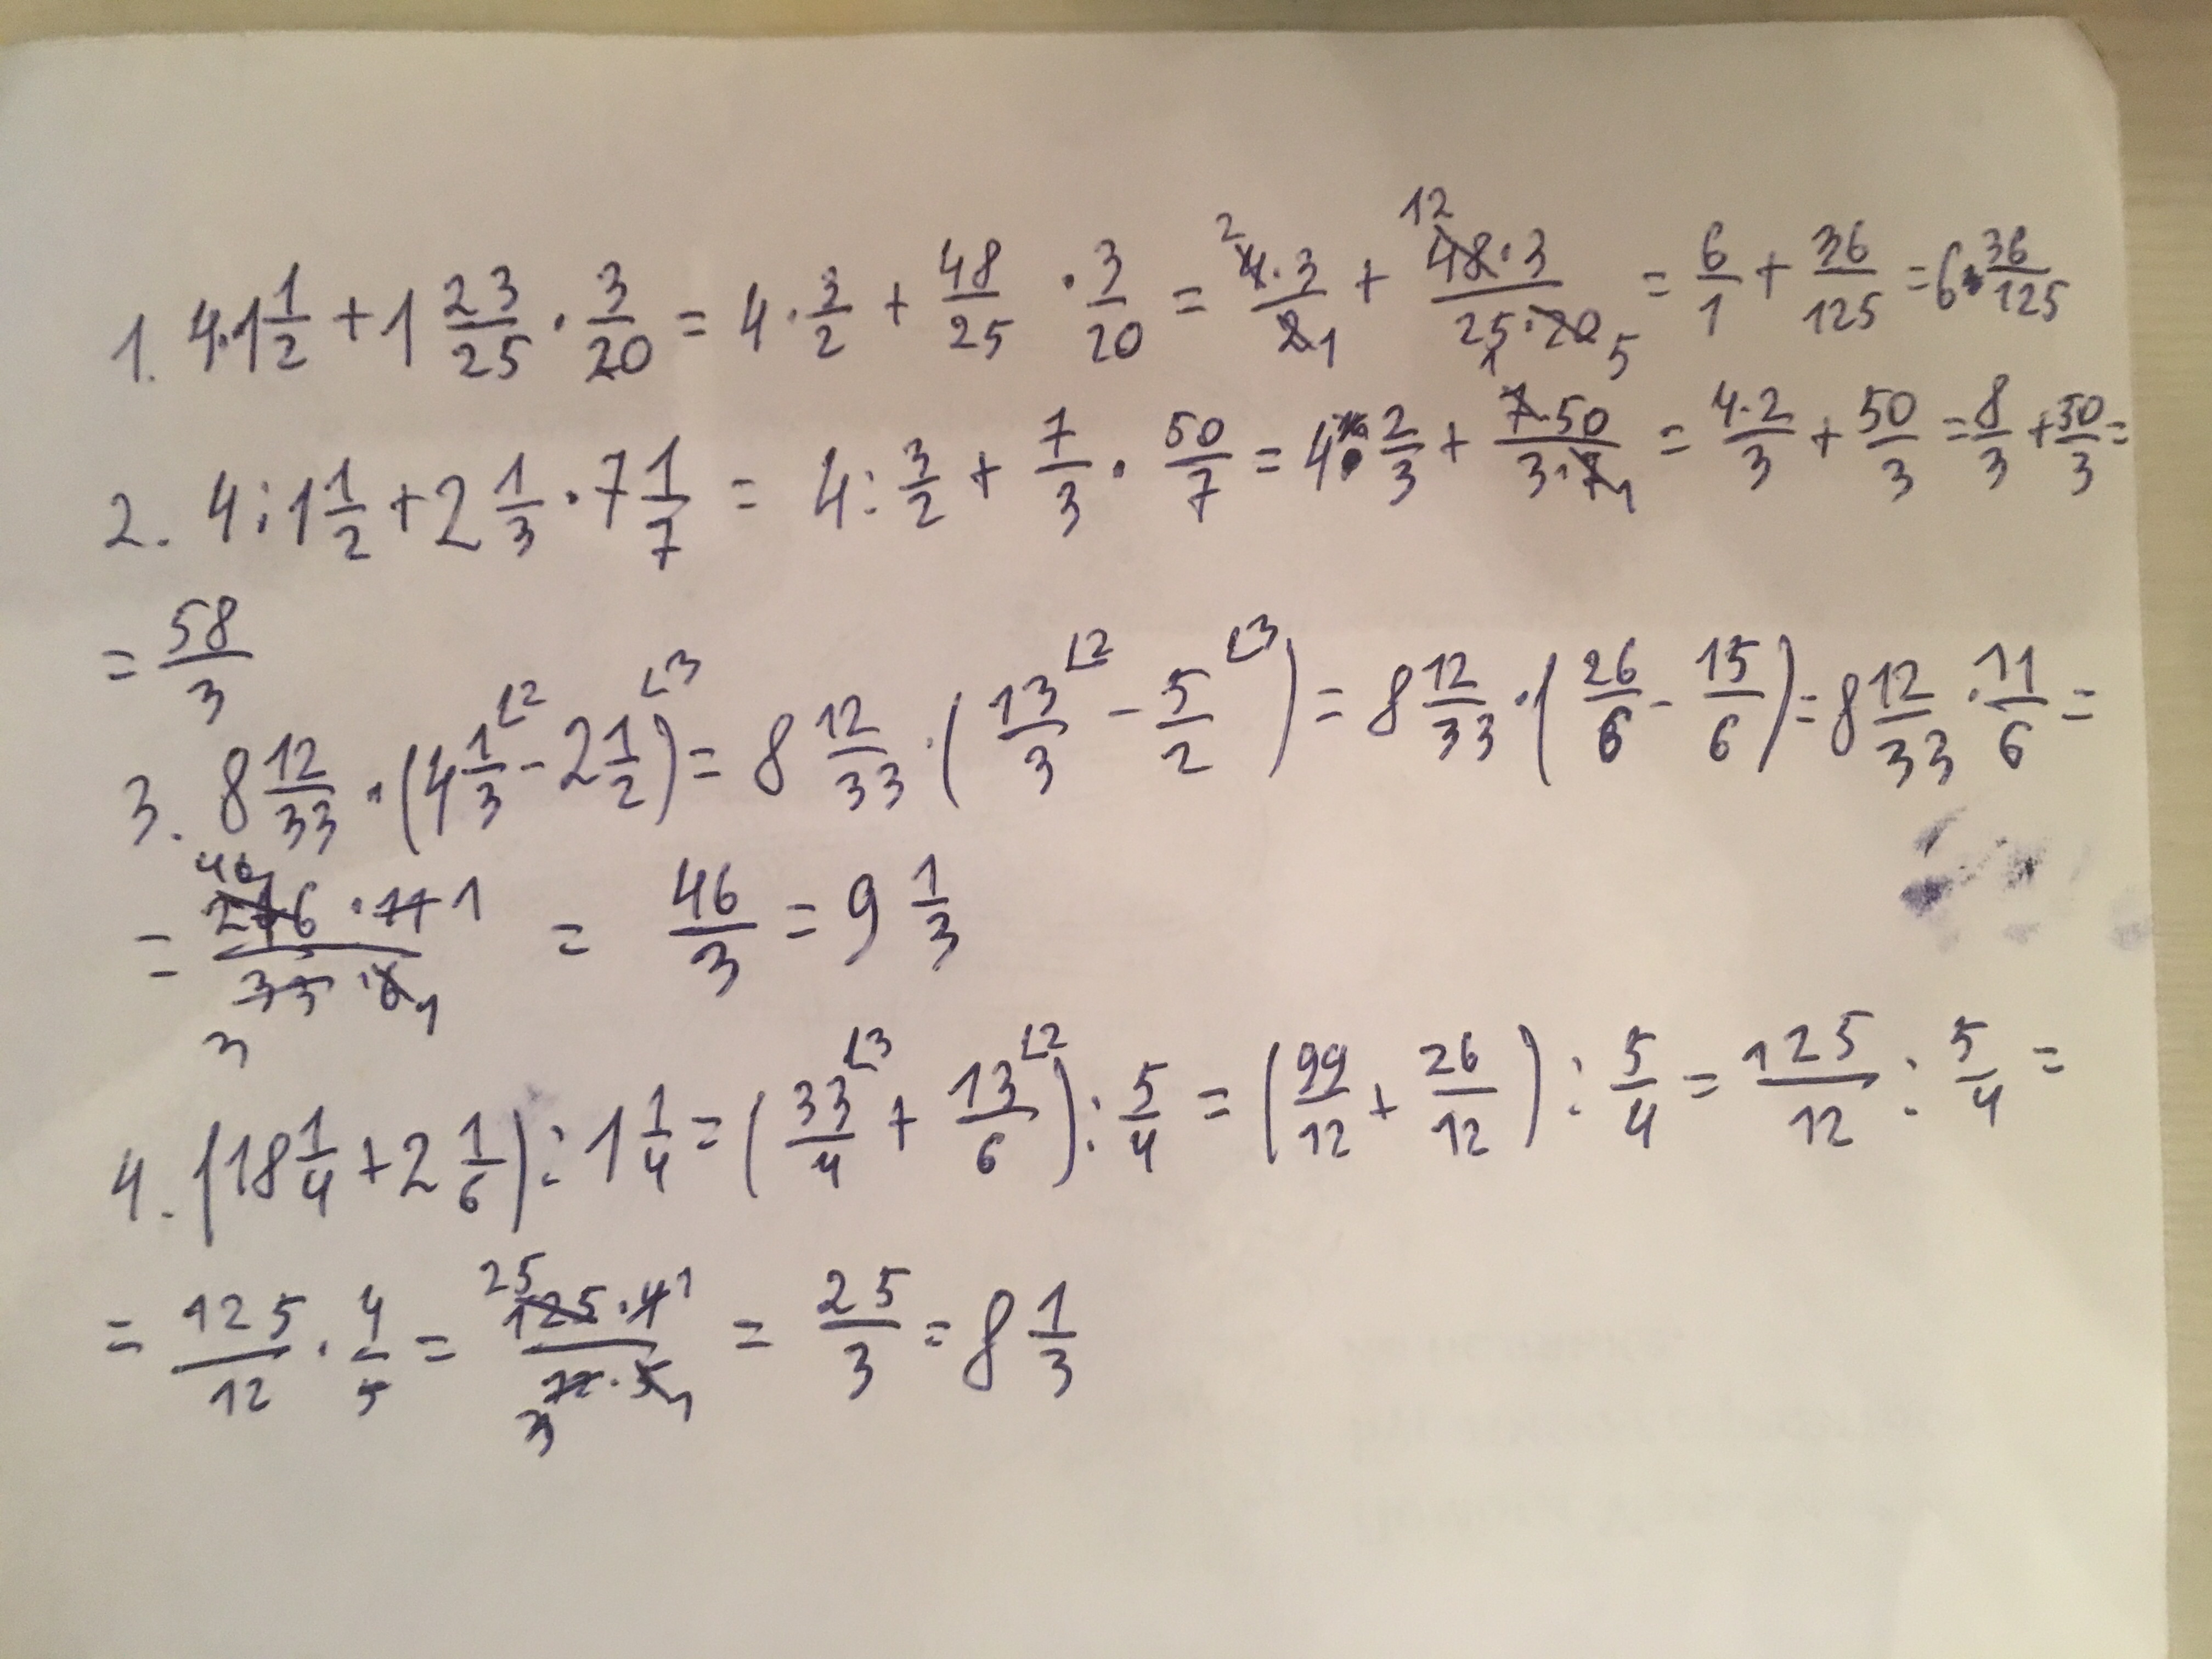 1. 4·1 1/2 + 1 23/25 · 3/20 = 4 · 3/2 + 48/25 · 3/20 = 4·3/2 + 48·3/25·20 = 6/1 + 36/125 = 6 36/125
2. 4 : 1 1/2 + 2 1/3 · 7 1/7 = 4 : 3/2 + 7/3 · 50/7 = 4 · 2/3 + 7·50/3·7 = 4·2/3 + 50/3 = 8/3 + 50/3 =
= 58/3
3. 8 12/33 · (4 1/3 - 2 1/2) = 8 12/33 · (13/3 - 5/2) = 8 12/33 · (26/6 - 15/6) = 8 12/33 · 11/6 =
= 276·11/33·6 = 46/3 = 9 1/3
4. (18 1/4 + 2 1/6) : 1 1/4 = (33/4 + 13/6) : 5/4 = (99/12 + 26/12) : 5/4 = 125/12 : 5/4 =
= 125/12 · 4/5 = 125·4/12·5 = 25/3 = 8 1/3